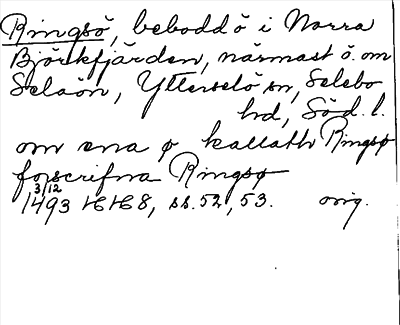 Ringsö, bebodd ö i Norra
Björkfjärden, närmast ö. om
Selaön, Ytterselö sn, Selebo
hd, Söd. l.
om ena ø kallath Ringsø
forscrifna Ringsø
3/12
1493 HH 8, ss. 52, 53. orig.